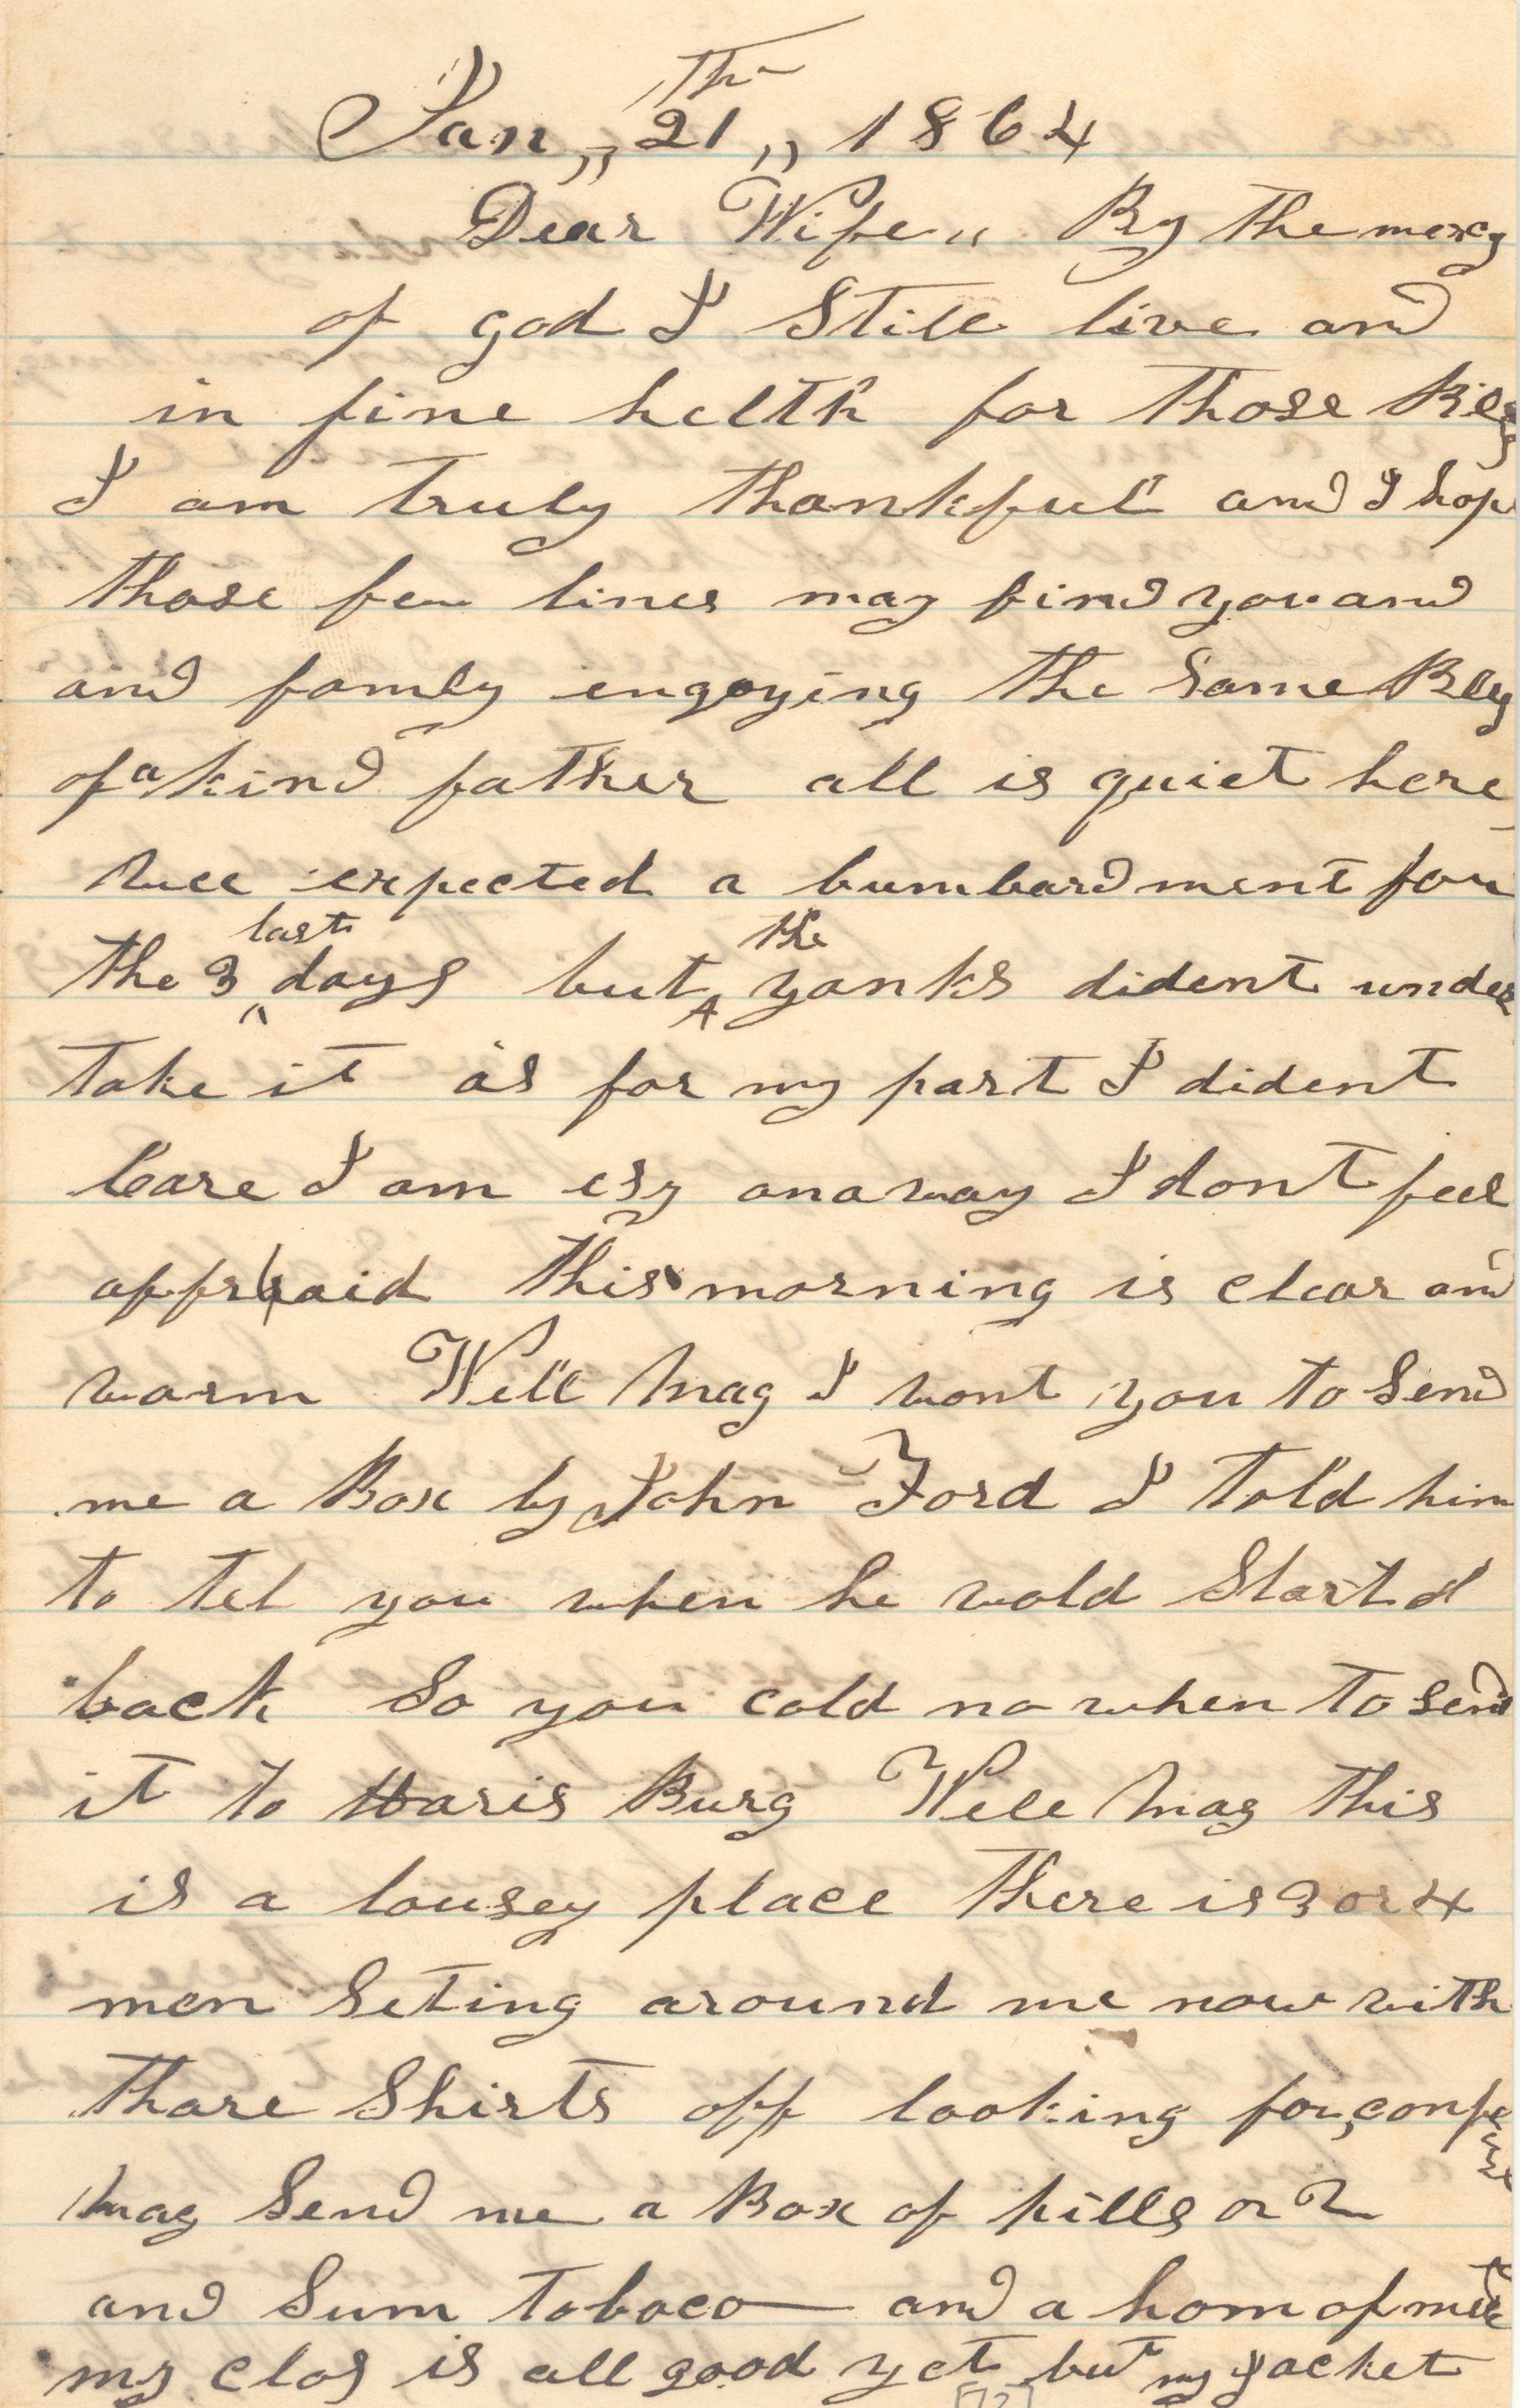 Jan,, 21th,, 1864
Dear Wife,, By the mercy
of god I Still live and
in fine helth for those
I am truly thankfull and I hope
those few lines may find you and
and famly engoying the Same
of a kind father all is quiet here
wee expected a bumbardment for
the 3 last days but the yanks dident under
take it as for my part I dident
Care I am esy anaway I dont feel
affraid this morning is clear and
warm Well Mag I wont you to Send
me a Box by John Ford I told him
to tel you when he wold Start
back So you cold no when to Send
it to Haris Burg Well Mag this
is a lousey place there is 3 or 4
men Seting around me now with
thare Shirts off looking for
Mag Send me a Box of pills or 2
and Sum tobaco and a ham of meet
my clos is all good yet but my jacket
[72]